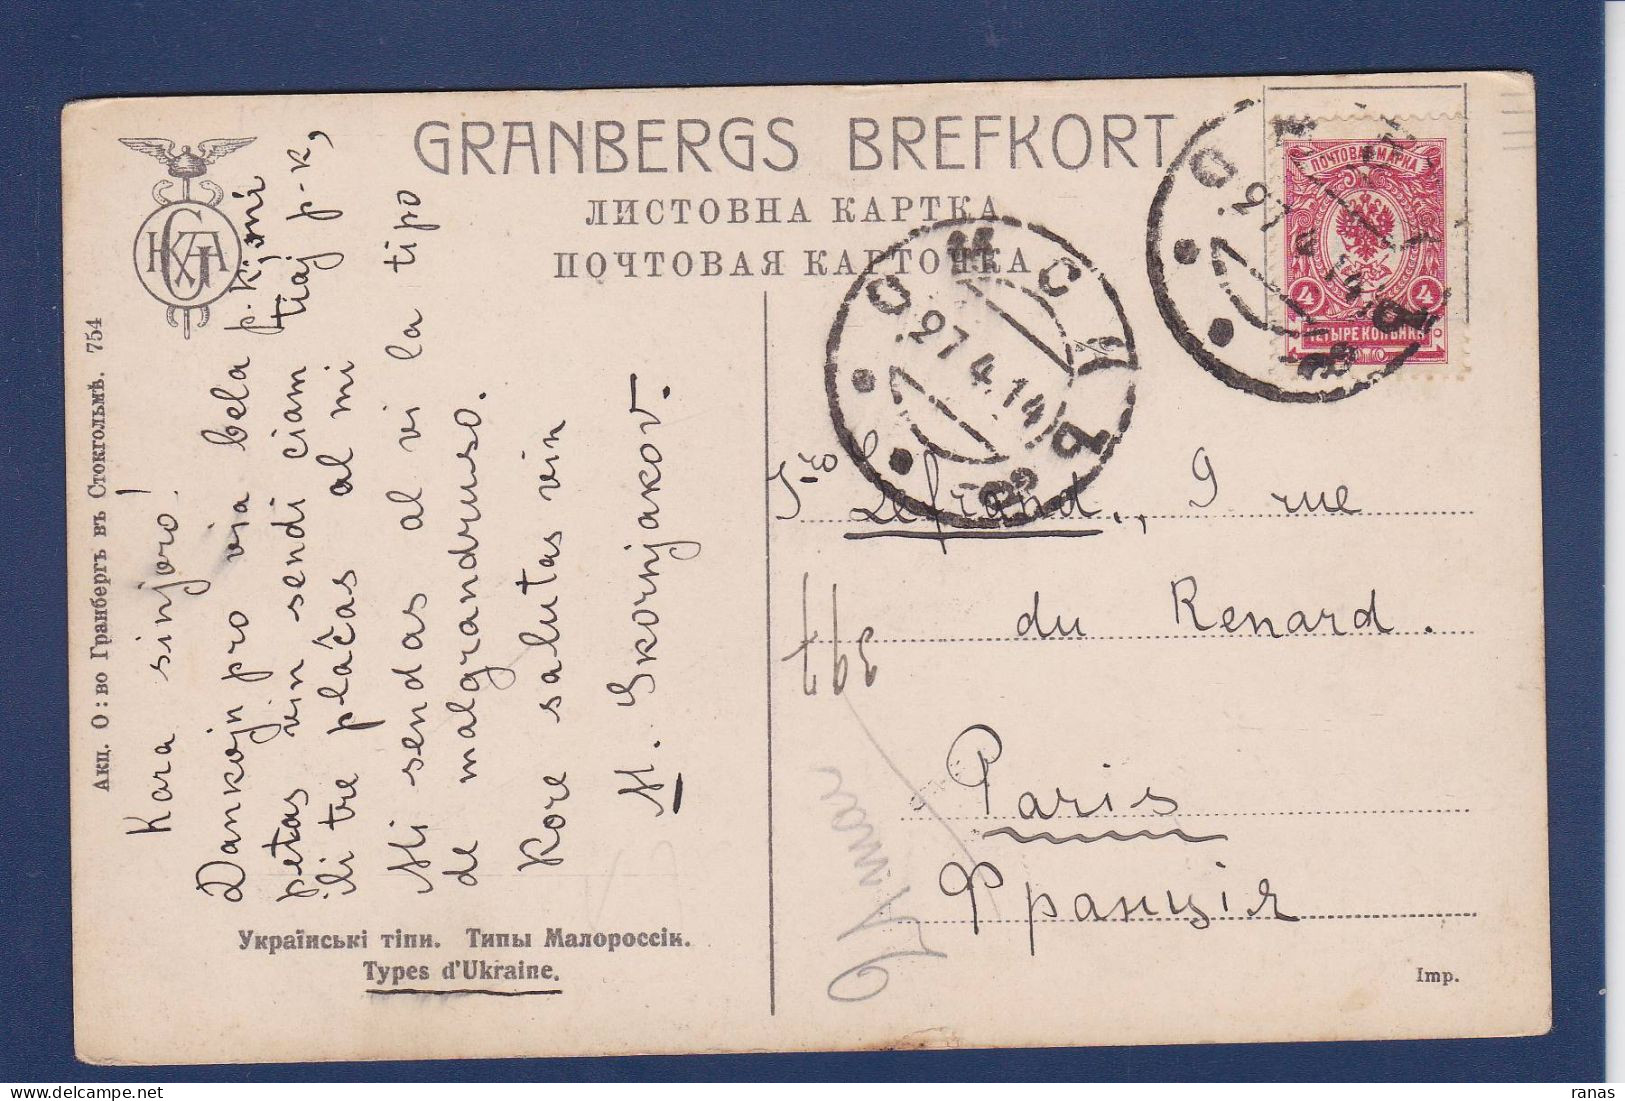 GRANBERGS BREFKORT
ЛИСТОВНА КАРТКА
ПОЧТОВАЯ КАРТОЧКА
Акц. О:во Гранбергъ въ Стокгольмѣ. 754
Kara sinjoro!
Dankojn pro via bela p.k; mi
petas vin sendi ĉiam tiaj p-k,
ili tre plaĉas al mi
Mi sendas al vi la tipo
de malgrandruso.
Kore salutas vin
M. Skornjakov.
Українські тіпи. Типы Малороссіи.
Types d'Ukraine.
ПОЧТОВАЯ МАРКА
4 4
ЧЕТЫРЕ КОПѢЙКИ
ОМСКЪ
27 4 14
ОМСКЪ
27 4 14
S-ro Lefrand., 9 rue
du Renard.
Paris
Франція
397
Imp.
ranas